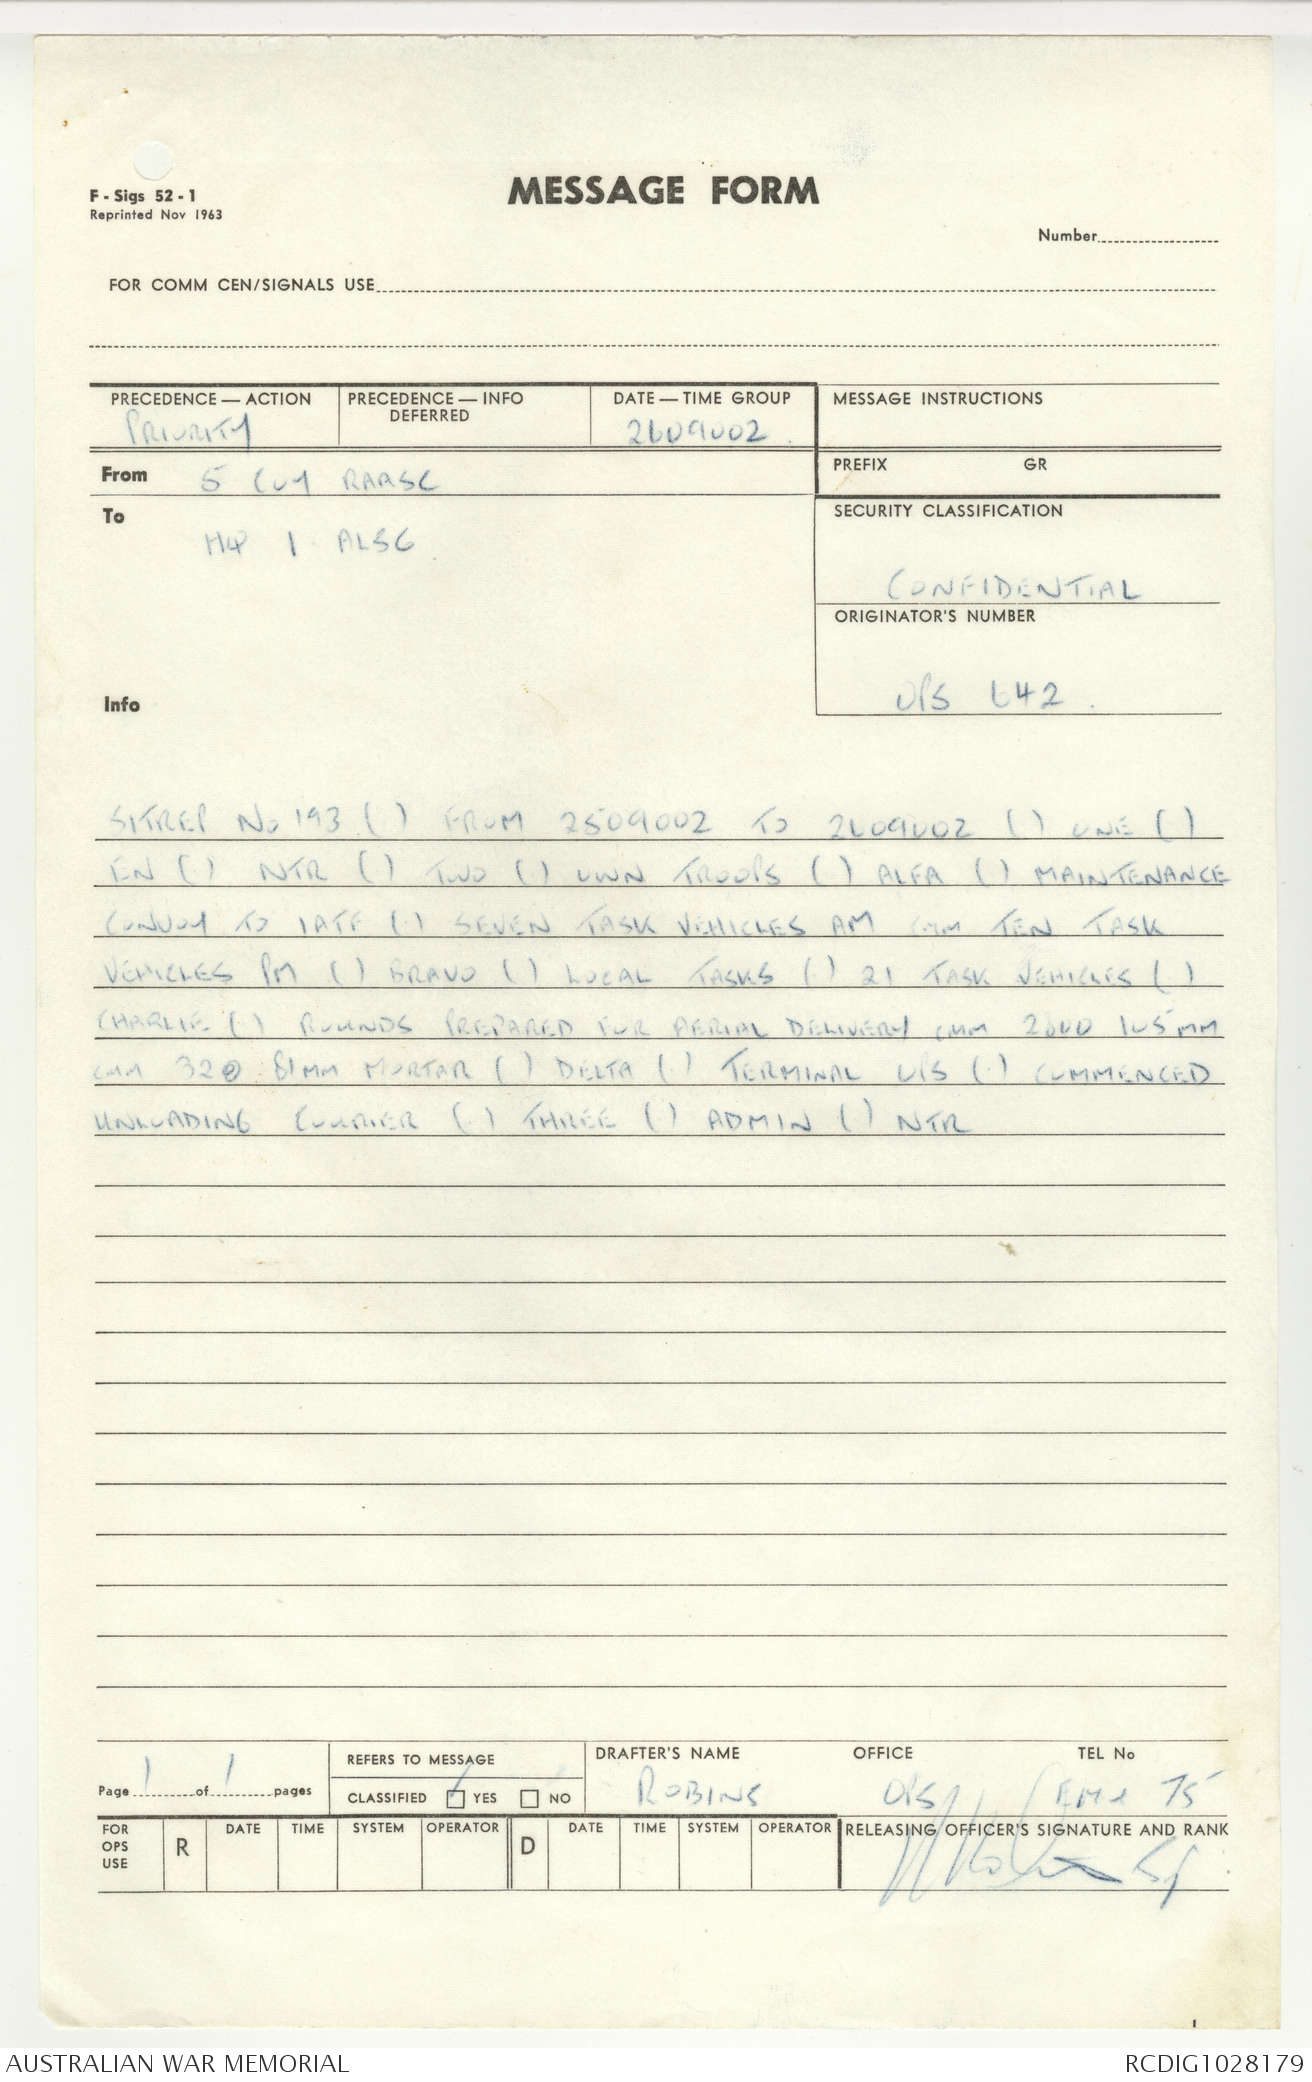 F - Sigs 52 - 1
Reprinted Nov 1963
MESSAGE FORM
Number
FOR COMM CEN/SIGNALS USE
PRECEDENCE — ACTION
PRIORITY
PRECEDENCE — INFO
DEFERRED
DATE — TIME GROUP
260900Z
MESSAGE INSTRUCTIONS
From 5 COY RAASC
PREFIX GR
To
HQ 1 ALSG
SECURITY CLASSIFICATION
CONFIDENTIAL
ORIGINATOR'S NUMBER
OPS 642
Info
SITREP No 193 ( ) FROM 250900Z TO 260900Z ( ) ONE ( )
EN ( ) NTR ( ) TWO ( ) OWN TROOPS ( ) ALFA ( ) MAINTENANCE
CONVOY TO 1ATF (.) SEVEN TASK VEHICLES AM CMM TEN TASK
VEHICLES PM ( ) BRAVO ( ) LOCAL TASKS (.) 21 TASK VEHICLES ( )
CHARLIE (.) ROUNDS PREPARED FOR AERIAL DELIVERY CMM 2800 105MM
CMM 320 81MM MORTAR ( ) DELTA (.) TERMINAL OPS (.) COMMENCED
UNLOADING COURIER (.) THREE ( ) ADMIN ( ) NTR
Page 1 of 1 pages
REFERS TO MESSAGE
CLASSIFIED YES NO
DRAFTER'S NAME
ROBINS
OFFICE
OPS
TEL No
EMU 75
FOR
OPS
USE
R DATE TIME SYSTEM OPERATOR D DATE TIME SYSTEM OPERATOR
RELEASING OFFICER'S SIGNATURE AND RANK
AUSTRALIAN WAR MEMORIAL
RCDIG1028179